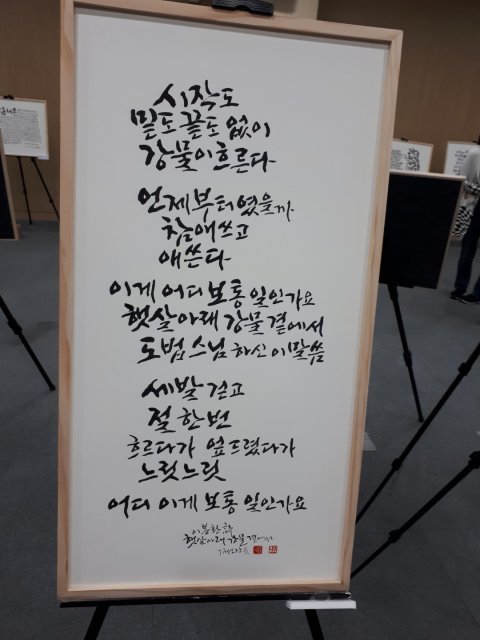 시작도
밑도 끝도 없이
강물이 흐른다
언제부터였을까
참 애쓰고
애쓴다
이게 어디 보통 일인가요
햇살 아래 강물 곁에서
도법 스님 하신 이 말씀
세 발 걷고
절 한 번
흐르다가 엎드렸다가
느릿느릿
어디 이게 보통 일인가요
햇살 아래 강물 곁에서